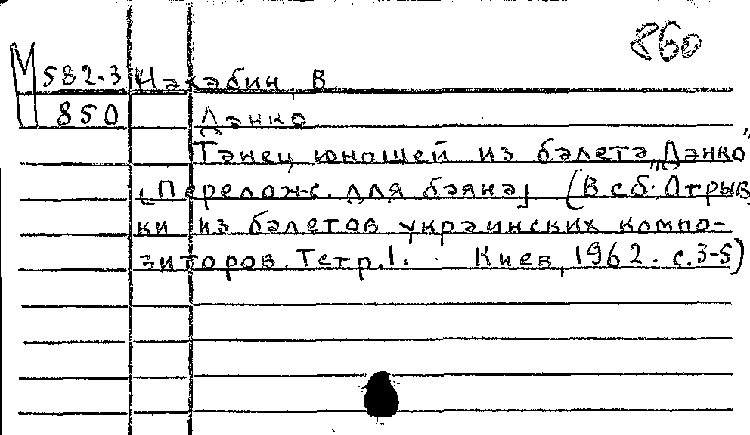 860
М 582.3 Нахабин, В
850 Данко
Танец юношей из балета „Данко"
[Перелож. для баяна] (В сб: Отрыв
ки из балетов украинских компо-
зиторов. Тетр. 1. Киев, 1962. с. 3-5)